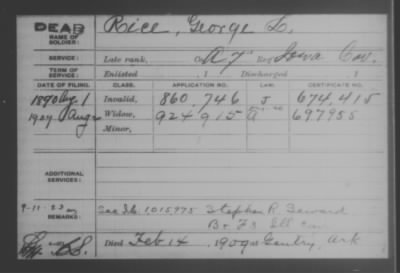 DEAD Rice, George L.
NAME OF SOLDIER:
SERVICE: Late rank, Co A 7" Reg Iowa Cav.
TERM OF SERVICE: Enlisted , 1 Discharged , 1
DATE OF FILING. CLASS. APPLICATION NO. LAW. CERTIFICATE NO.
1890 Aug. 1 Invalid, 860.746 J 674,415
1909 Aug 2 Widow, 924915 a 697955
Minor,
ADDITIONAL SERVICES:
9-11-23 See I.O. 1,015,975 Stephen R. Seward
REMARKS: B & F 3 Ill Cav
Died Feb 14, 1909 at Gentry, Ark